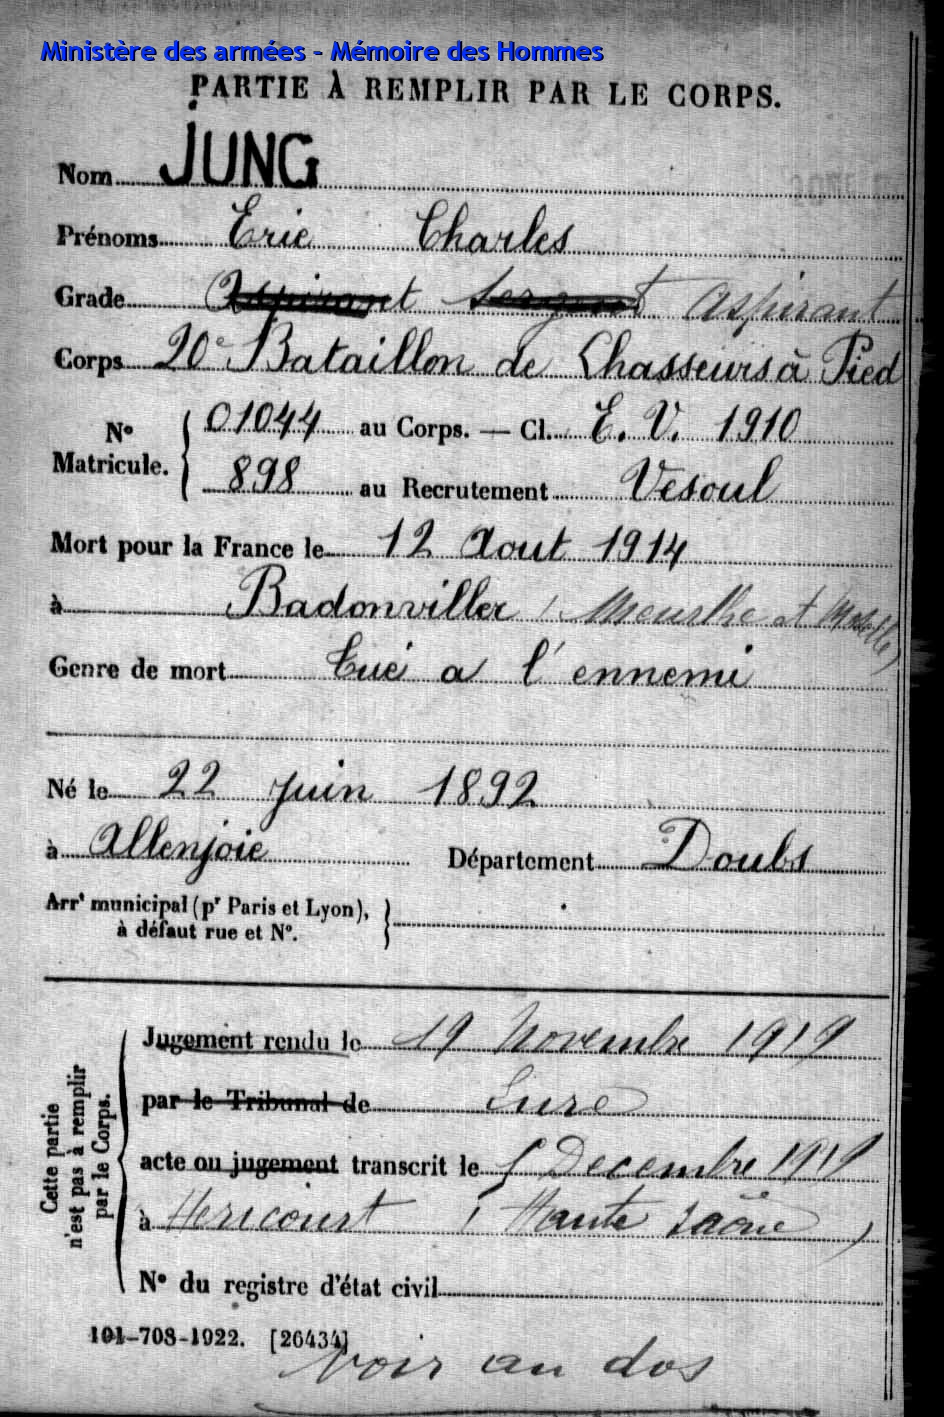 Ministère des armées - Mémoire des Hommes
PARTIE À REMPLIR PAR LE CORPS.
Nom JUNG
Prénoms Eric Charles
Grade Aspirant Sergent aspirant
Corps 20e Bataillon de Chasseurs à Pied
No Matricule. { 01044 au Corps. — Cl. E. V. 1910
898 au Recrutement Vesoul
Mort pour la France le 12 Aout 1914
à Badonviller (Meurthe et Moselle)
Genre de mort Tué a l'ennemi
Né le 22 Juin 1892
à Allenjoie Département Doubs
Arrt municipal (pr Paris et Lyon), }
à défaut rue et No.
Cette partie
n'est pas à remplir
par le Corps.
Jugement rendu le 19 Novembre 1919
par le Tribunal de Lure
acte ou jugement transcrit le 5 Decembre 1919
à Hericourt (Haute Saône)
No du registre d'état civil
101-708-1922. [26434]
Voir au dos